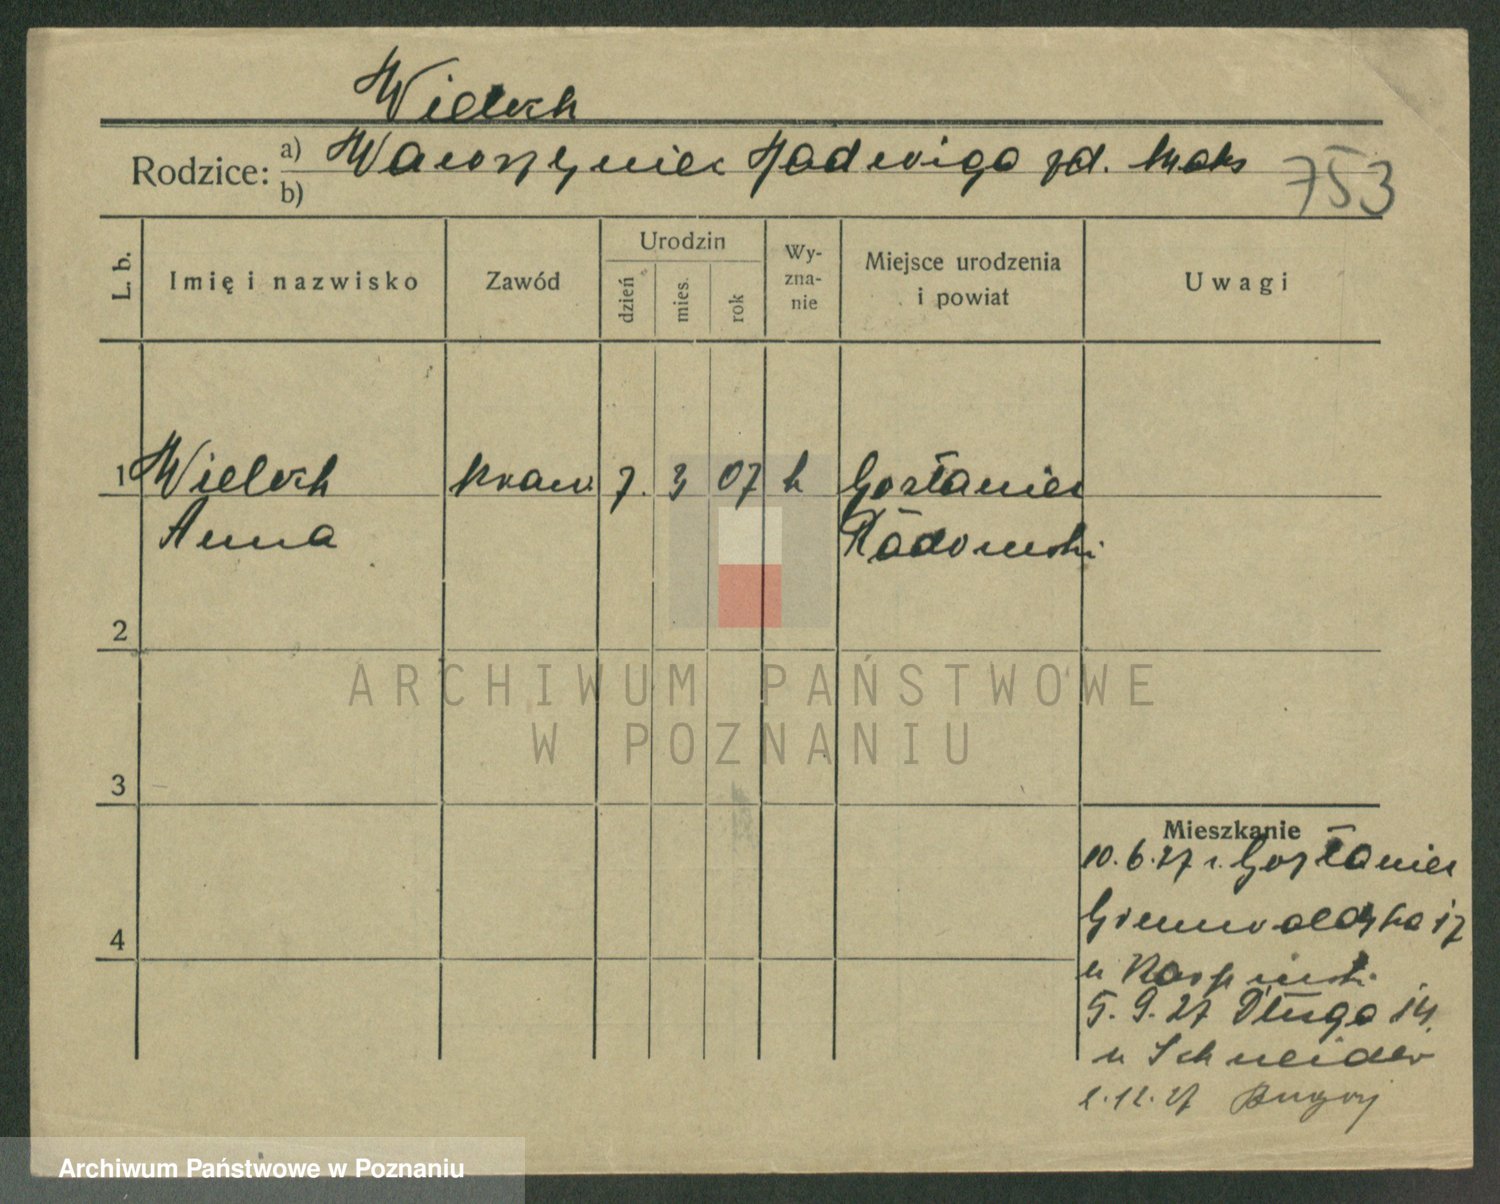 Wielich
Rodzice: a) Wawrzyniec Jadwiga zd. Maks 753
b)
L. b. Imię i nazwisko Zawód Urodzin dzień mies. rok Wy-zna-nie Miejsce urodzenia i powiat Uwagi
1 Wielich kraw. 7. 3 07 k
Anna Radomski
2
3
Mieszkanie
10.6.27
Grunwaldzka 17
4
u
5.9.27 Długa 14
u Schneider
2.12.27
ARCHIWUM PAŃSTWOWE
W POZNANIU
Archiwum Państwowe w Poznaniu